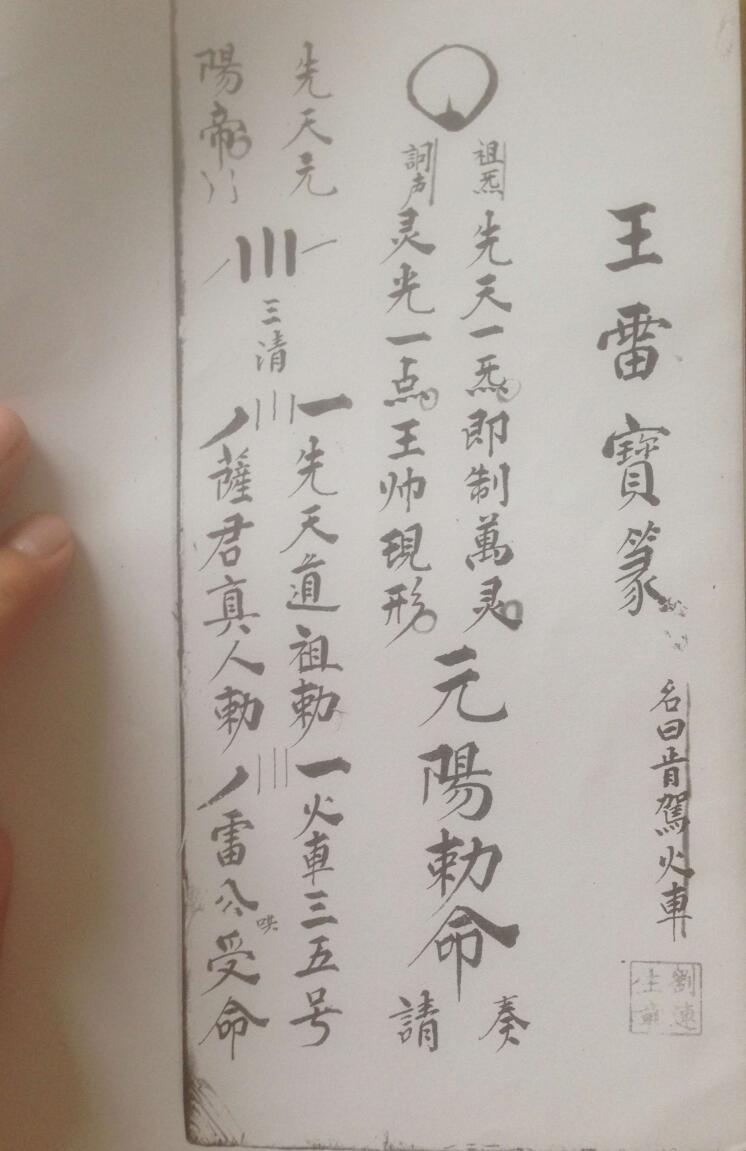 王雷寶篆
名曰肯駕火車
祖炁
先天一炁即制萬灵
灵光一点王帅現形
元陽勅命
奏請
先天元
陽帝
三清
一先天道祖勅
薩君真人勅
一火車三五号
雷公受命